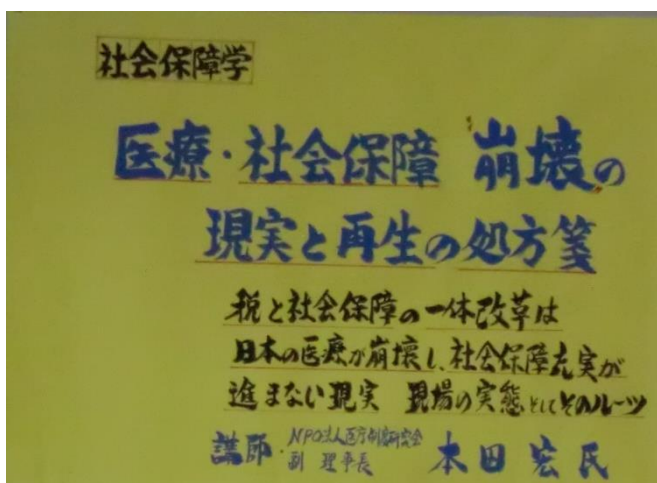 社会保障学
医療・社会保障 崩壊の
現実と再生の処方箋
税と社会保障の一体改革は
日本の医療が崩壊し、社会保障充実が
進まない現実 現場の実態としてそのルーツ
講師・NPO法人医療制度研究会
副理事長 本田宏氏